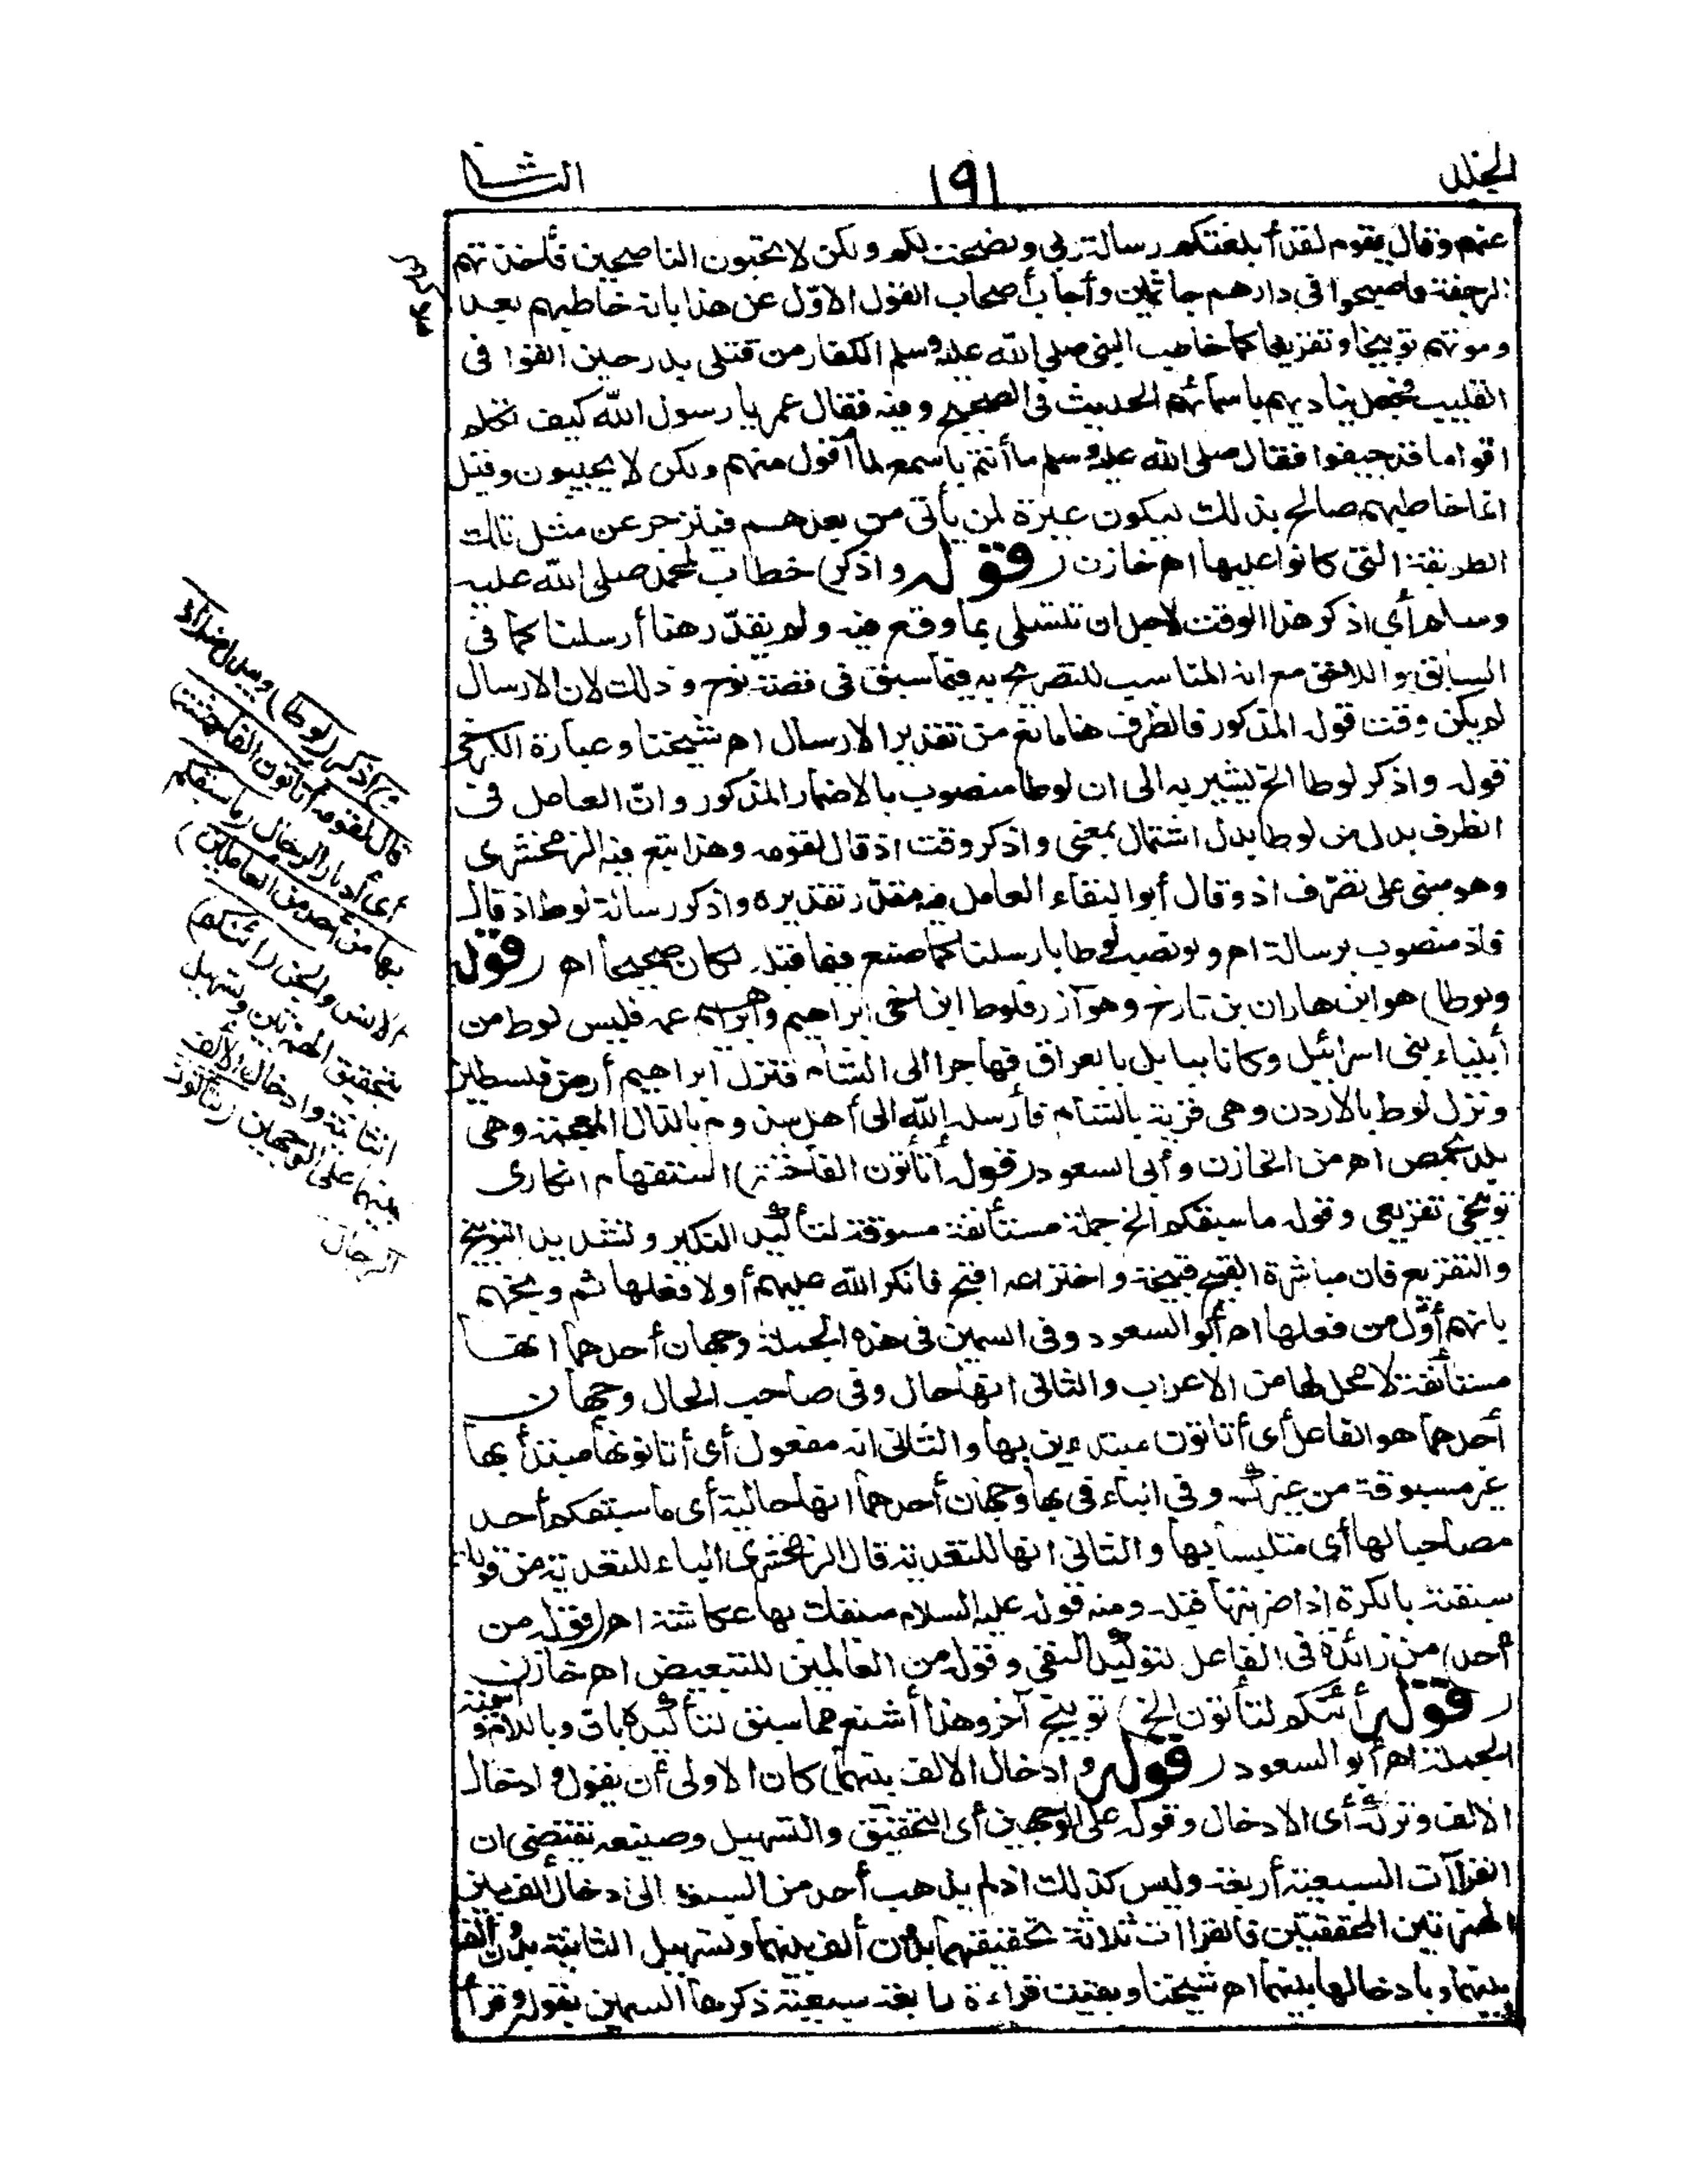 الجلد
١٩١
الثانى
عنهم وقال يقوم لقد أبلغتكم رسالة ربي ونصحت لكم ولكن لا تحبون الناصحين فأخذتهم
الرجفة فاصبحوا فى دارهم جاثمين وأجاب أصحاب القول الاوّل عن هذا بانه خاطبهم بعد
وموتهم توبيخا وتقريعا كما خاطب النبى صلى الله عليه وسلم الكفار من قتلى بدر حين القوا فى
القليب فجعل يناديهم باسمائهم الحديث فى الصحيح وفيه فقال عمر يا رسول الله كيف تكلم
اقواما قد جيفوا فقال صلى الله عليه وسلم ما أنتم باسمع لما أقول منهم ولكن لا يجيبون وقيل
انما خاطبهم صالح بذلك ليكون عبرة لمن يأتى من بعدهم فينزجر عن مثل تلك
الطريقة التى كانوا عليها اه خازن (قوله واذكر) خطاب لمحمد صلى الله عليه
وسلم أي اذكر هذا الوقت لاجل ان تتسلى بما وقع فيه ولم يقدّر هنا أرسلنا كما فى
السابق واللاحق مع انه المناسب للتصريح به فيما سبق فى قصة نوح وذلك لان الارسال
لم يكن وقت قوله المذكور فالظرف هنا مانع من تقدير الارسال اه شيخنا وعبارة الكرخى
قوله واذكر لوطا الخ يشير به الى ان لوطا منصوب بالاضمار المذكور وانّ العامل فى
الظرف بدل من لوطا بدل اشتمال بمعنى واذكر وقت اذ قال لقومه وهذا تبع فيه الزمخشرى
وهو مبنى على تصرّف اذ وقال أبو البقاء العامل فيه مقدّر تقديره واذكر رسالة لوط اذ قال
فاذ منصوب برسالة اه ولو نصب لوطا بارسلنا كما صنع فيما قبله لكان صحيحا اه (قوله
ولوطا) هو ابن هاران بن تارخ وهو آزر فلوط ابن اخى ابراهيم وابراهيم عمه فليس لوط من
أنبياء بنى اسرائيل وكانا ببابل بالعراق فهاجرا الى الشام فنزل ابراهيم أرض فلسطين
ونزل لوط بالاردن وهى قرية بالشام فأرسله الله الى أهل سذوم بالذال المعجمة وهى
بلد بحمص اه من الخازن وأبى السعود (قوله أتأتون الفاحشة) استفهام انكارى
توبيخى تقريعى وقوله ما سبقكم الخ جملة مستأنفة مسوقة لتأكيد النكير وتشديد التوبيخ
والتقريع فان مباشرة القبيح قبيحة واختراعه اقبح فانكر الله عليهم أولا فعلها ثم وبخهم
بانهم أوّل من فعلها اه أبو السعود وفى السمين فى هذه الجملة وجهان أحدهما انها
مستأنفة لا محل لها من الاعراب والثانى انها حال وفى صاحب الحال وجهان
أحدهما هو الفاعل أى أتأتون مبتدءين بها والثانى انه مفعول أى أتأتونها مبتدأ بها
غير مسبوقة من غيركم وفى الباء فى بها وجهان أحدهما انها حالية أى ما سبقكم أحد
مصاحبا لها أى متلبسا بها والثانى انها للتعدية قال الزمخشرى الباء للتعدية من قولك
سبقته بالكرة اذا ضربتها قبله ومنه قوله عليه السلام سبقك بها عكاشة اه (قوله من
أحد) من زائدة فى الفاعل لتوكيد النفى وقوله من العالمين للتبعيض اه خازن
(قوله أئنكم لتأتون الخ) توبيخ آخر وهذا أشنع مما سبق لتأكيده بان وباللام واسمية
الجملة اه أبو السعود (قوله وادخال الالف بينهما) كان الاولى أن يقول وادخال
الالف وتركه أى الادخال وقوله على الوجهين أى التحقيق والتسهيل وصنيعه يقتضى ان
القراآت السبعية أربعة وليس كذلك اذ لم يذهب أحد من السبعة الى ادخال ألف بين
الهمزتين المحققتين فالقراات ثلاثة تحقيقهما بدون ألف بينهما وتسهيل الثانية بدون ألف
بينهما وبادخالها بينهما اه شيخنا وبقيت قراءة رابعة سبعية ذكرها السمين بقوله وقرأ
(و) اذكر (لوطا) ويبدل منه (اذ
قال لقومه أتأتون الفاحشة)
أى أدبار الرجال (ما سبقكم
بها من أحد من العالمين)
الانس والجن (أئنكم)
بتحقيق الهمزتين وتسهيل
الثانية وادخال الألف
بينهما على الوجهين (لتأتون
الرجال